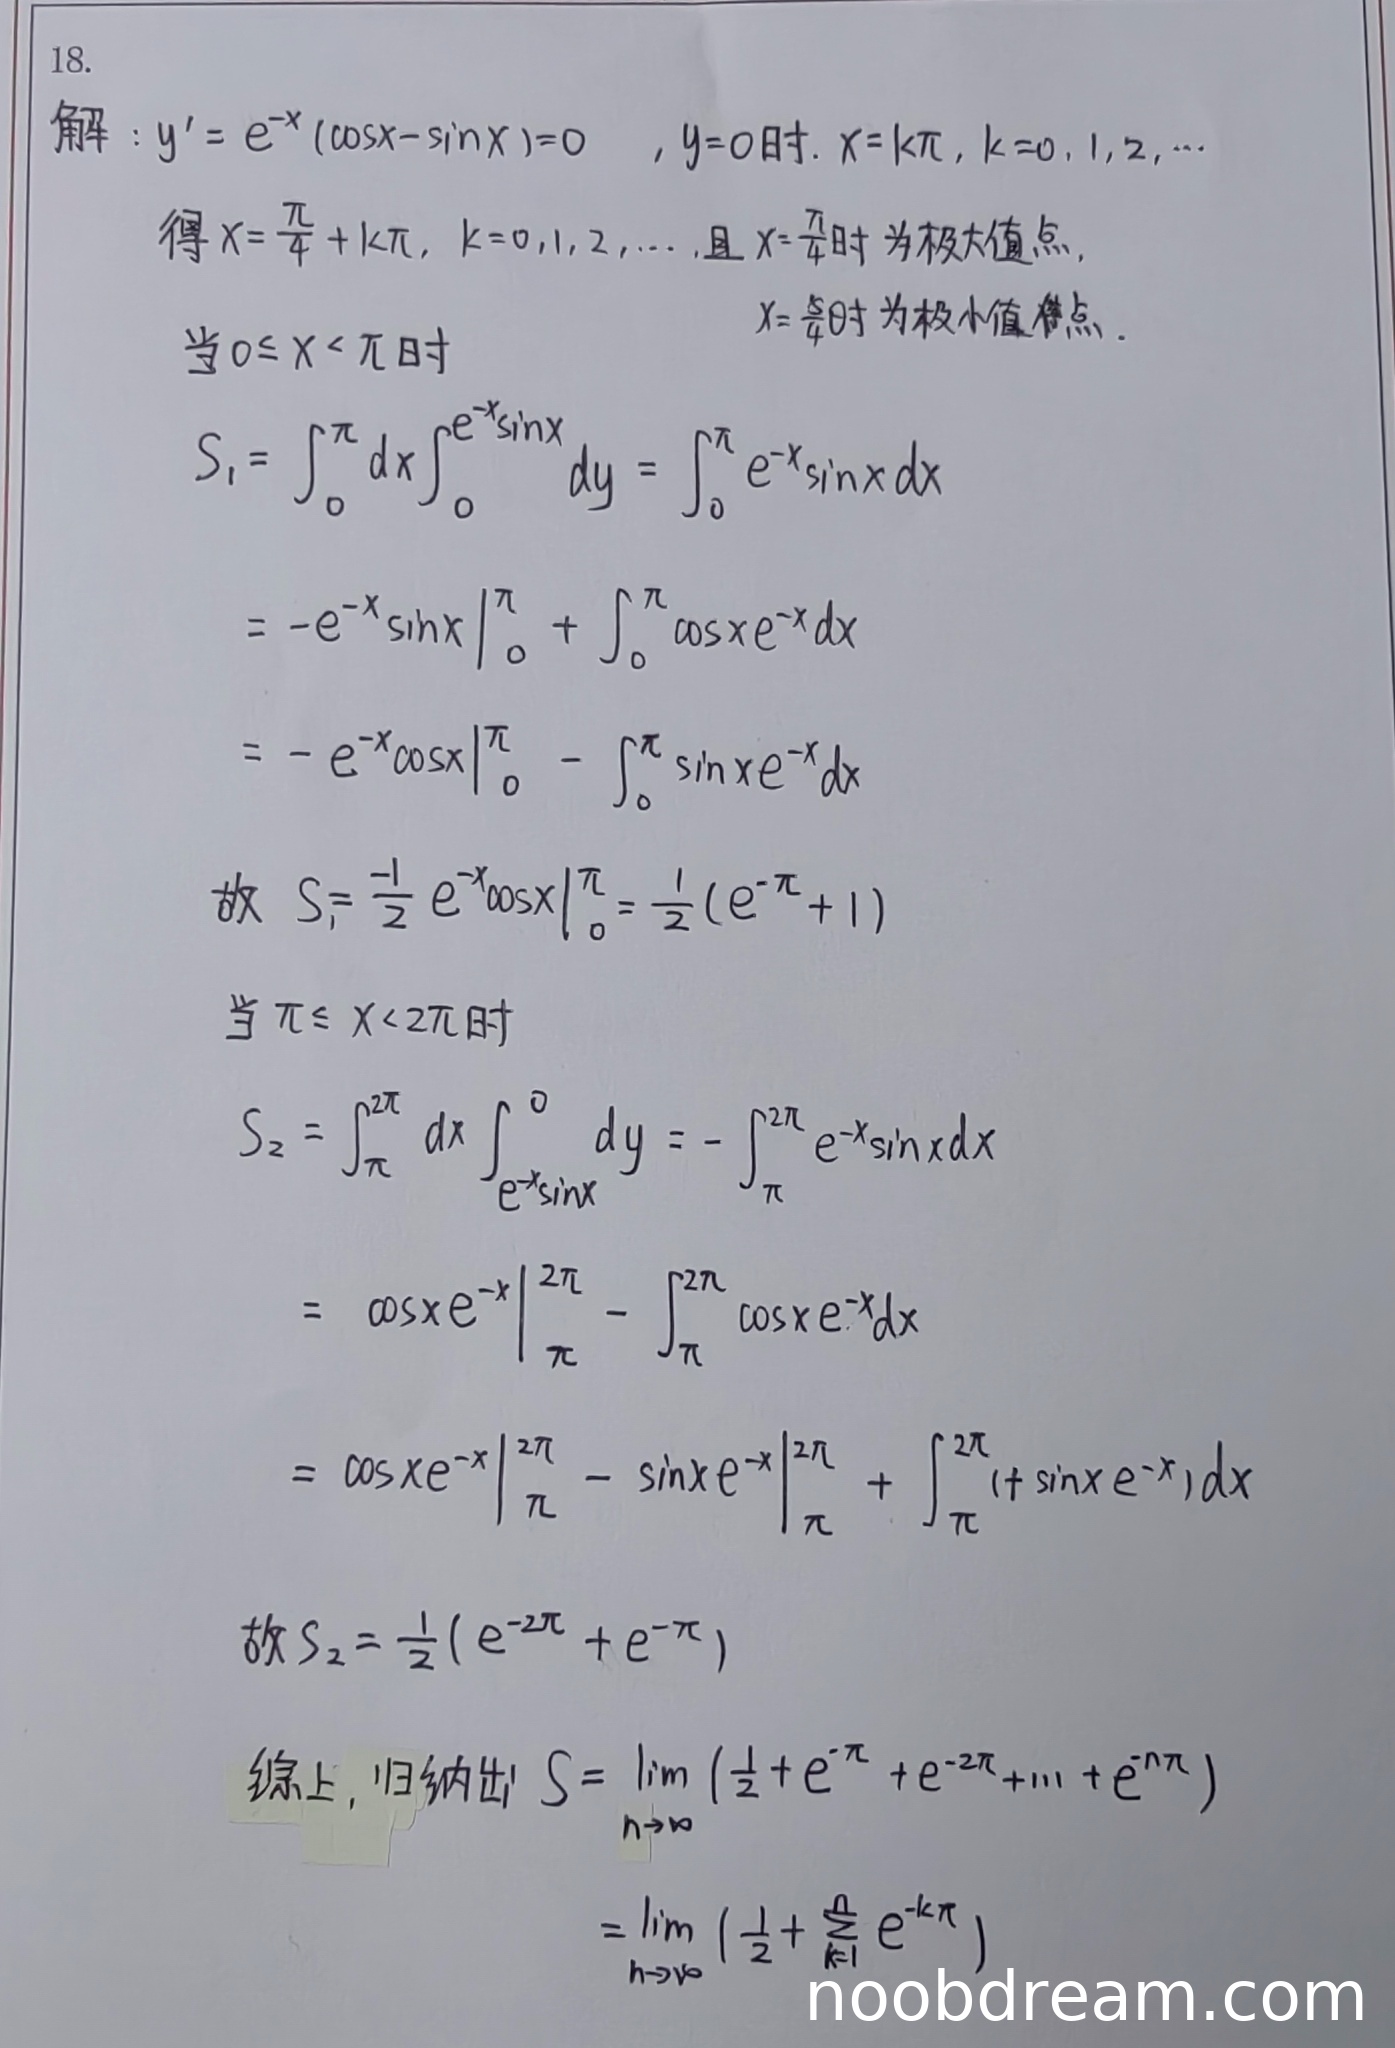 18.
解：y' = e^{-x}(cosx-sinx)=0 , y=0时. x=kπ, k=0,1,2,…
得 x=π/4+kπ, k=0,1,2,…,且 x=π/4时 为极大值点,
x=5/4时 为极小值点.
当 0≤x<π时
S₁=∫_0^π dx∫_0^{e^{-x}sinx} dy = ∫_0^π e^{-x}sinxdx
= -e^{-x}sinx|_0^π + ∫_0^π cosxe^{-x}dx
= -e^{-x}cosx|_0^π - ∫_0^π sinxe^{-x}dx
故 S₁= -1/2 e^{-x}cosx|_0^π = 1/2(e^{-π}+1)
当 π≤x<2π时
S₂ = ∫_π^{2π} dx ∫_{e^{-x}sinx}^0 dy = -∫_π^{2π} e^{-x}sinxdx
= cosxe^{-x}|_π^{2π} - ∫_π^{2π} cosxe^{-x}dx
= cosxe^{-x}|_π^{2π} - sinxe^{-x}|_π^{2π} + ∫_π^{2π}(+sinxe^{-x})dx
故S₂=1/2(e^{-2π}+e^{-π})
综上,归纳出 S = lim_{n→∞}(1/2+e^{-π}+e^{-2π}+…+e^{-nπ})
=lim_{n→∞}(1/2+∑_{k=1}^n e^{-kπ})
noobdream.com